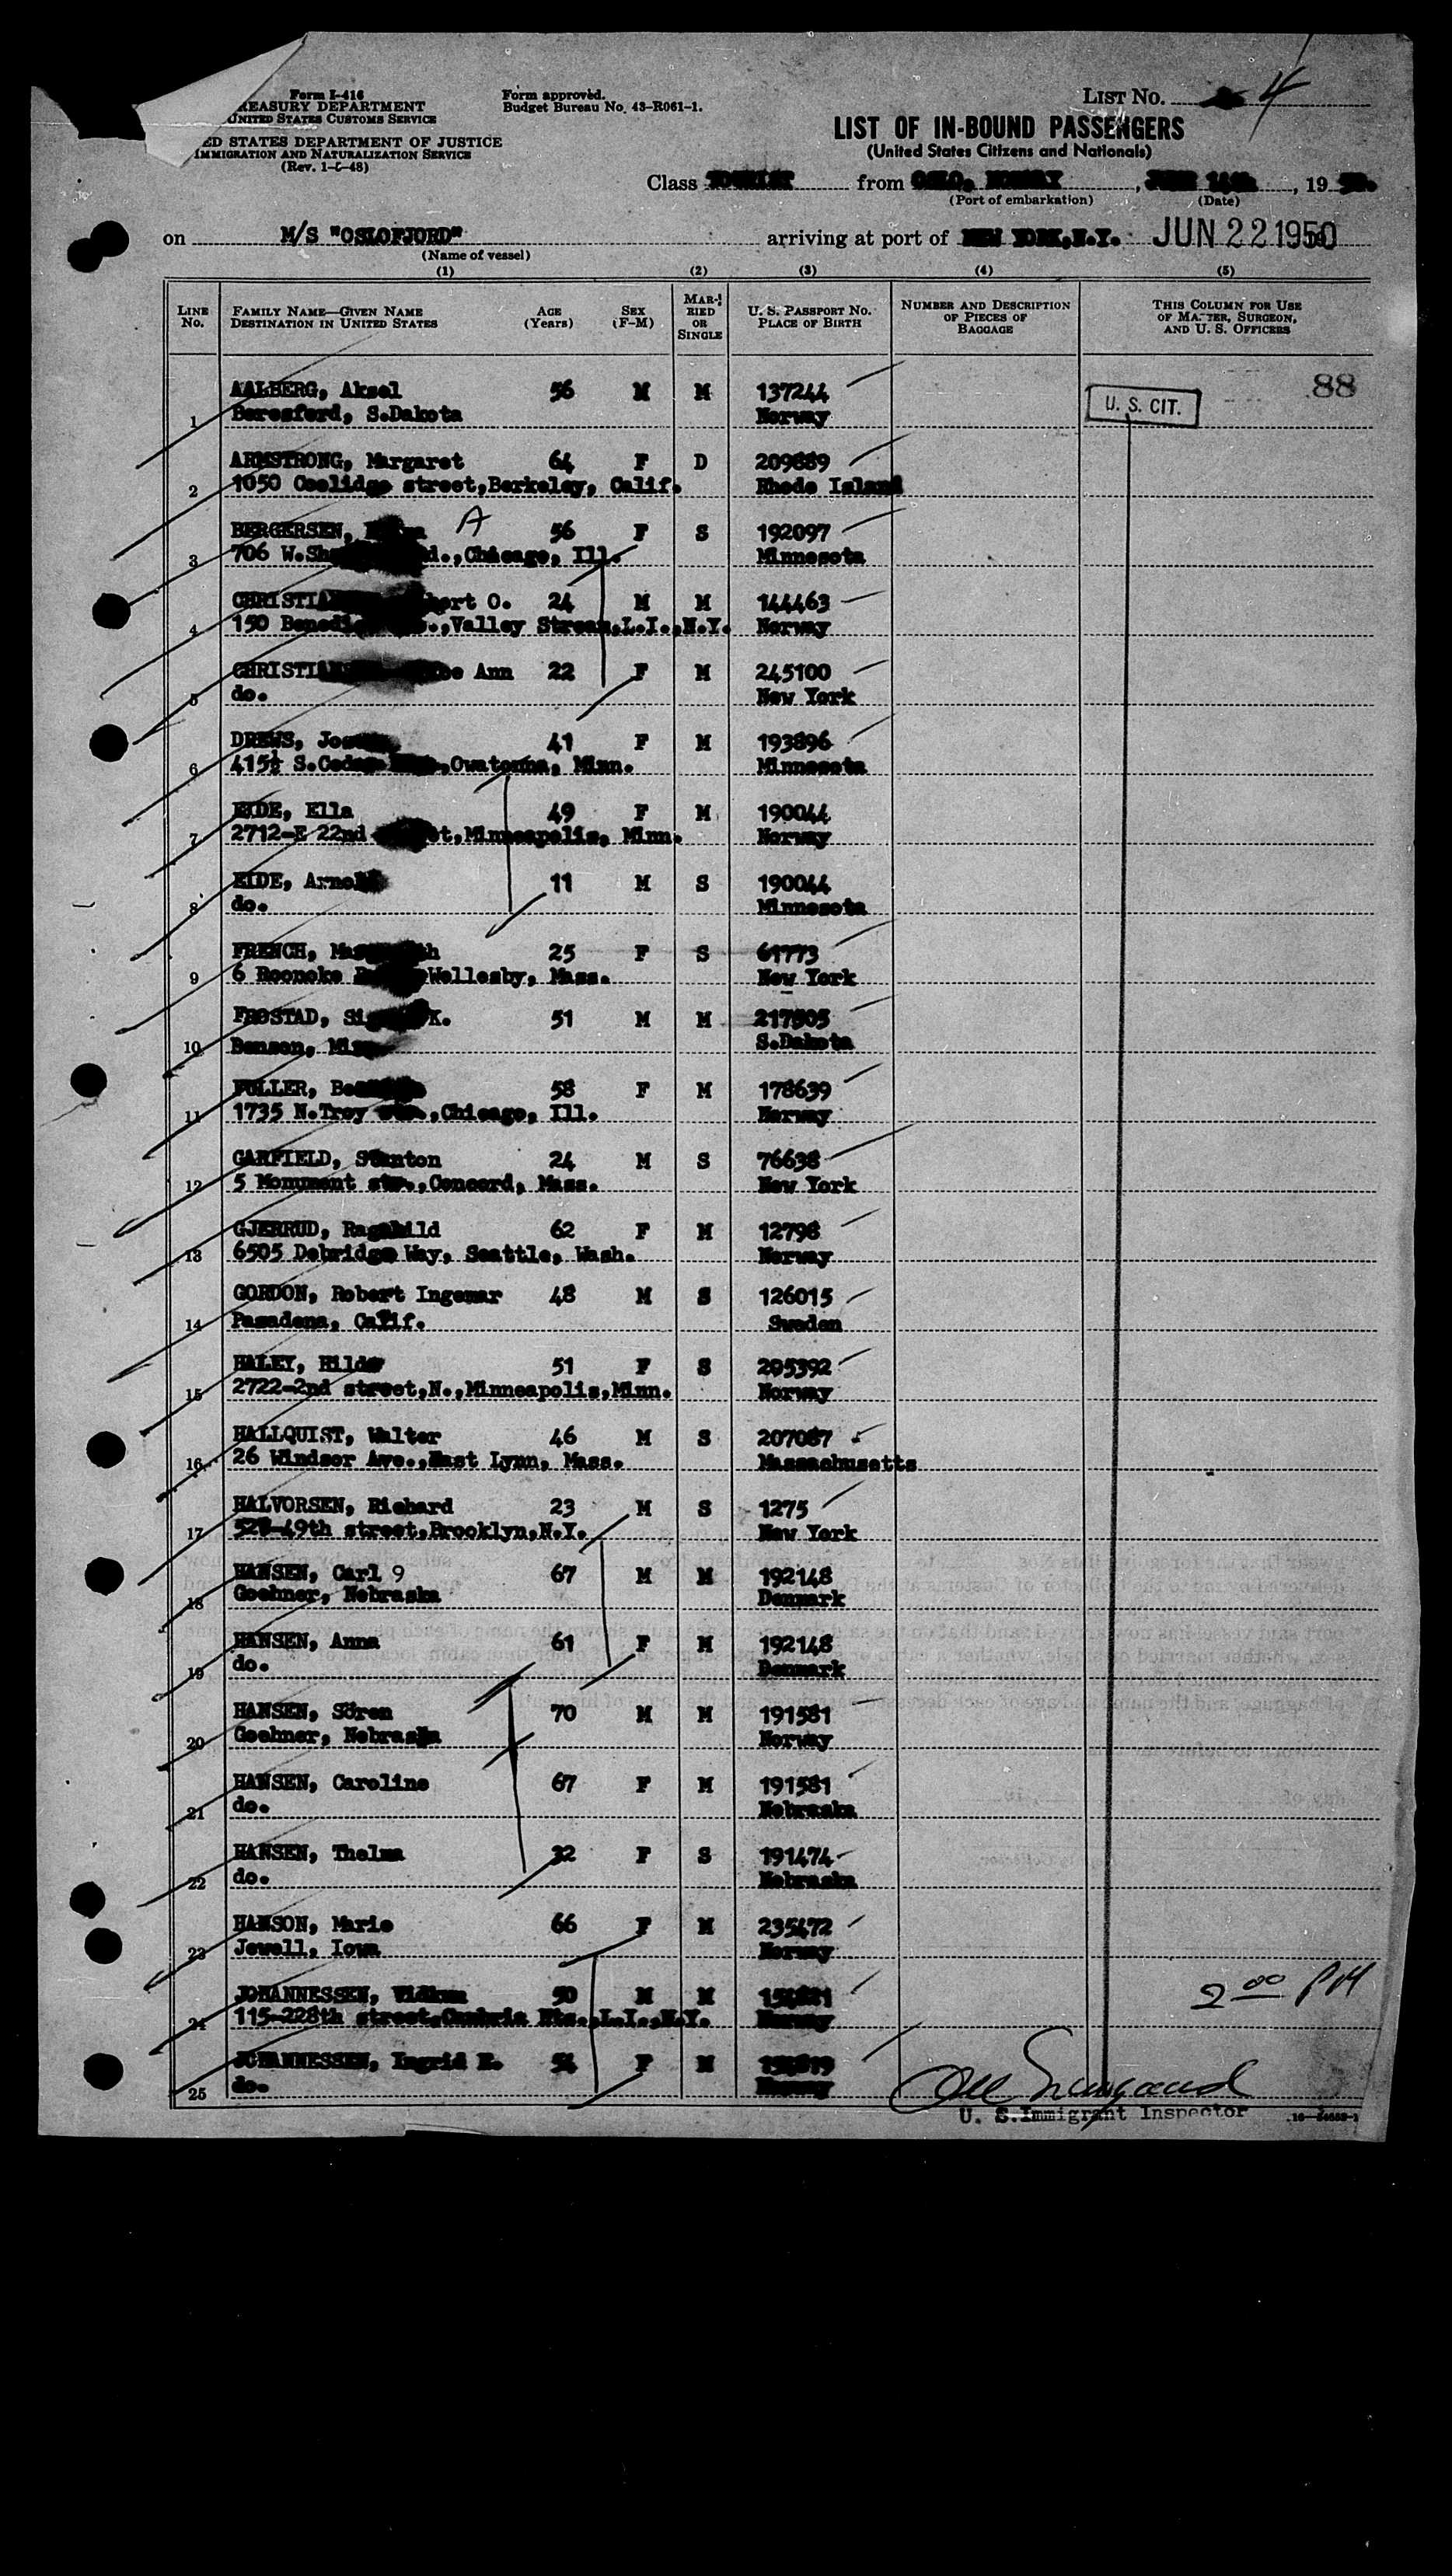 Form I-416
TREASURY DEPARTMENT
UNITED STATES CUSTOMS SERVICE
ED STATES DEPARTMENT OF JUSTICE
IMMIGRATION AND NATURALIZATION SERVICE
(Rev. 1-6-48)
Form approved.
Budget Bureau No. 43-R061-1.
LIST NO. 4
LIST OF IN-BOUND PASSENGERS
(United States Citizens and Nationals)
Class TOURIST from OSLO, NORWAY, JUNE 14th, 19 50.
(Port of embarkation) (Date)
on M/S "OSLOFJORD" arriving at port of NEW YORK, N.Y. JUN 22 1950
(Name of vessel)
(1) (2) (3) (4) (5)
LINE NO. FAMILY NAME—GIVEN NAME DESTINATION IN UNITED STATES AGE (Years) SEX (F-M) MARRIED OR SINGLE U. S. PASSPORT NO. PLACE OF BIRTH NUMBER AND DESCRIPTION OF PIECES OF BAGGAGE THIS COLUMN FOR USE OF MASTER, SURGEON, AND U. S. OFFICERS
AALBERG, Aksel 56 M M 137244 U. S. CIT. 88
1 Beresford, S.Dakota Norway
ARMSTRONG, Margaret 64 F D 209889
2 1050 Coolidge street,Berkeley, Calif. Rhode Island
BERGERSEN, A 56 F S 192097
3 706 W. ,Chicago, Ill. Minnesota
O. 24 M M 144463
4 150 ,Valley Stream,L.I.,N.Y. Norway
Ann 22 F M 245100
5 do. New York
DREWS, 41 F M 193896
6 415½ S.Cedar ,Owatonna, Minn. Minnesota
EIDE, Ella 49 F M 190044
7 2712-E 22nd ,Minneapolis, Minn. Norway
EIDE, Arnold 11 M S 190044
8 do. Minnesota
FRENCH, 25 F S 61773
9 6 Roonoke Wellesby, Mass. New York
FROSTAD, K. 51 M M 217805
10 Benson, Minn. S.Dakota
FULLER, 58 F M 178639
11 1735 N.Troy ,Chicago, Ill. Norway
GARFIELD, Stanton 24 M S 76638
12 5 Monument str.,Concord, Mass. New York
GJERRUD, Ragnhild 62 F M 12798
13 6505 Debridge Way, Seattle, Wash. Norway
GORDON, Robert Ingemar 48 M S 126015
14 Pasadena, Calif. Sweden
HALEY, Hilda 51 F S 205392
15 2722-2nd street,N.,Minneapolis,Minn. Norway
HALLQUIST, Walter 46 M S 207087
16 26 Windsor Ave.,East Lynn, Mass. Massachusetts
HALVORSEN, Richard 23 M S 1275
17 527-49th street,Brooklyn,N.Y. New York
HANSEN, Carl 9 67 M M 192148
18 Goehner, Nebraska Denmark
HANSEN, Anna 61 F M 192148
19 do. Denmark
HANSEN, Sören 70 M M 191581
20 Goehner, Nebraska Norway
HANSEN, Caroline 67 F M 191581
21 do. Nebraska
HANSEN, Thelma 32 F S 191474
22 do. Nebraska
HANSON, Marie 66 F M 235472
23 Jewell, Iowa Norway
JOHANNESSEN, Vidkun 50 M M 2 00 PM
24 115-228th street,Cambria Hts.,L.I.,N.Y. Norway
JOHANNESSEN, Ingrid E. 54 F M
25 do. Norway
U. S. Immigrant Inspector